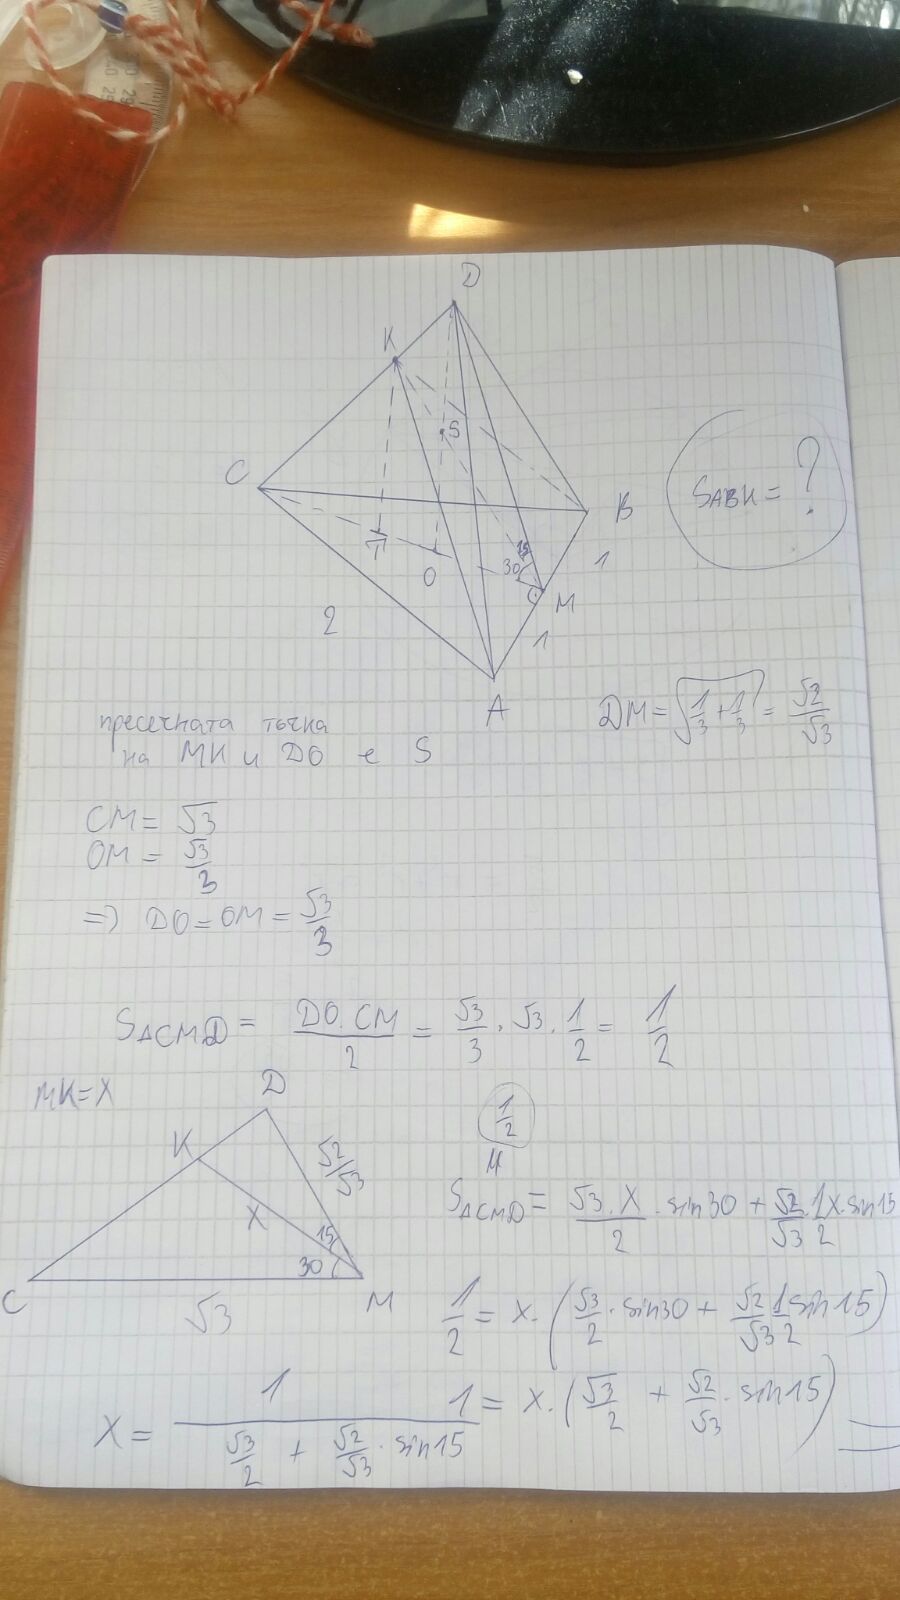 D
K
S
C
B
S_ABK = ?
1
15
30
O
M
2
1
A
пресечната точка
на MK и DO е S
DM = √(1/3 + 1/3) = √2/√3
CM = √3
OM = √3/3
=> DO = OM = √3/3
S_ΔCMD = DO.CM/2 = √3/3 . √3 . 1/2 = 1/2
MK = X
D
K
√2/√3
X
15
30
C
√3
M
1/2
S_ΔCMD = √3.X/2 . sin30 + √2/√3 . 1/2 X. sin15
1/2 = X. (√3/2 . sin30 + √2/√3 1/2 sin15)
1 = X. (√3/2 + √2/√3 . sin15)
X = 1/(√3/2 + √2/√3 . sin15)